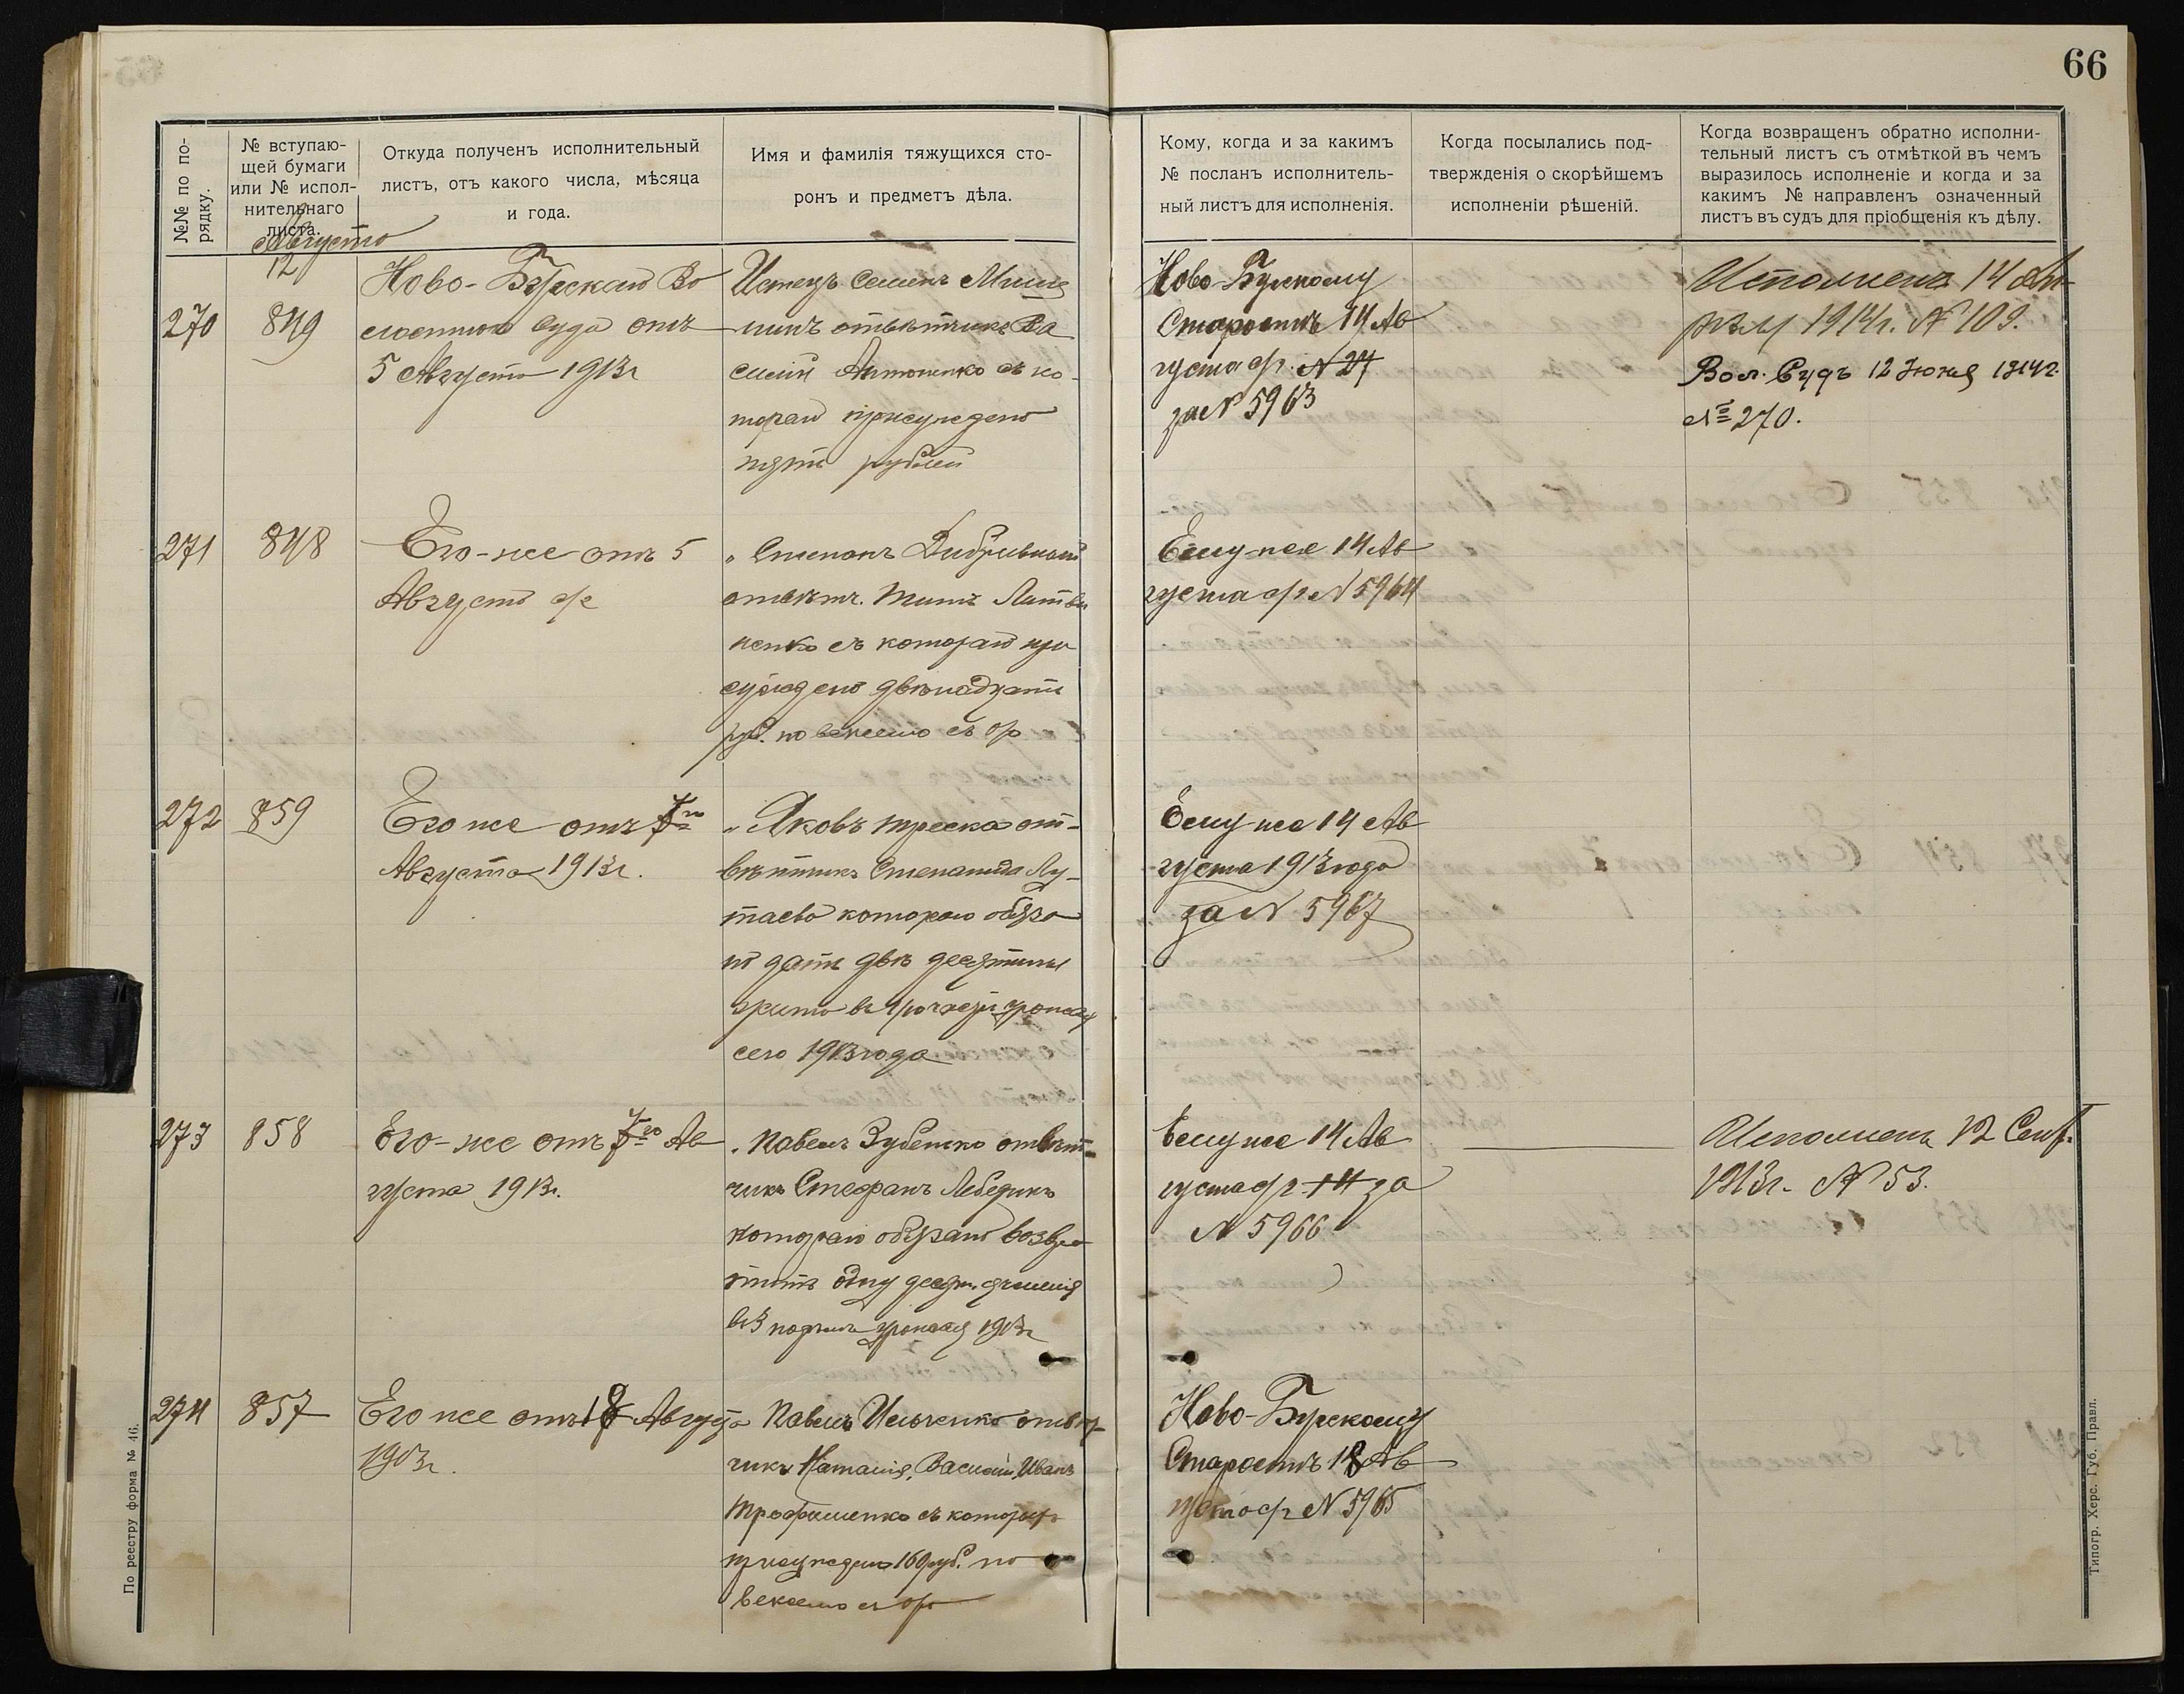 66
№№ по по-
рядку.
№ вступаю-
щей бумаги
или № испол-
нительнаго
листа.
Откуда полученъ исполнительный
листъ, отъ какого числа, мѣсяца
и года.
Имя и фамилія тяжущихся сто-
ронъ и предметъ дѣла.
Кому, когда и за какимъ
№ посланъ исполнитель-
ный листъ для исполненія.
Когда посылались под-
твержденія о скорѣйшемъ
исполненіи рѣшеній.
Когда возвращенъ обратно исполни-
тельный листъ съ отмѣткой въ чемъ
выразилось исполненіе и когда и за
какимъ № направленъ означенный
листъ въ судъ для пріобщенія къ дѣлу.
Августа
12
270
849
Ново-Бугскаго Во
лостного Суда отъ
5 Августа 1913г
Истецъ Семенъ
отвѣтчикъ Ва
силій Антоненко съ ко-
тораго присуждено
пять рублей
Ново-Бугскому
Старостѣ 14 Ав
густа с/г. N 27
за N 5963
Исполненъ 14 Ап-
рѣля 1914г. N 109.
Вол. Судъ 12 Іюня 1914г.
№ 270.
271
848
Его-же отъ 5
Августа с/г
" Степанъ
отвѣтч. Титъ Литви
ненко съ котораго при
суждено двѣнадцать
руб. по векселю съ %
Ему-же 14 Ав
густа с/г N 5964
272
859
Его же отъ 7го
Августа 1913г.
" Яковъ от-
вѣтчикъ Степанида Лу-
таева
дать двѣ десятины
сего 1913 года
Ему же 14 Ав
густа 1913 года
за N 5967
273
858
Его-же отъ 7го Ав
густа 1913г.
" Павелъ Зубенко отвѣт-
чикъ Стефанъ Лебединъ
котораго обязано возвра
тить одну десят. ячменя
урожая 1913г
Ему же 14 Ав
густа с/г 14 за
N 5966
Исполненъ 12 Сент.
1913г. N 53.
274
857
Его же отъ 8 Августа
1913г.
Павелъ Ильченко отвѣт-
чикъ Наталія, Василій, Иванъ
Трофименко съ которыхъ
присуждено 160 руб. по
векселю съ %
Ново-Бугскому
Старостѣ 18 Ав
густа с/г N 5965
По реестру форма № 46.
Типогр. Херс. Губ. Правл.